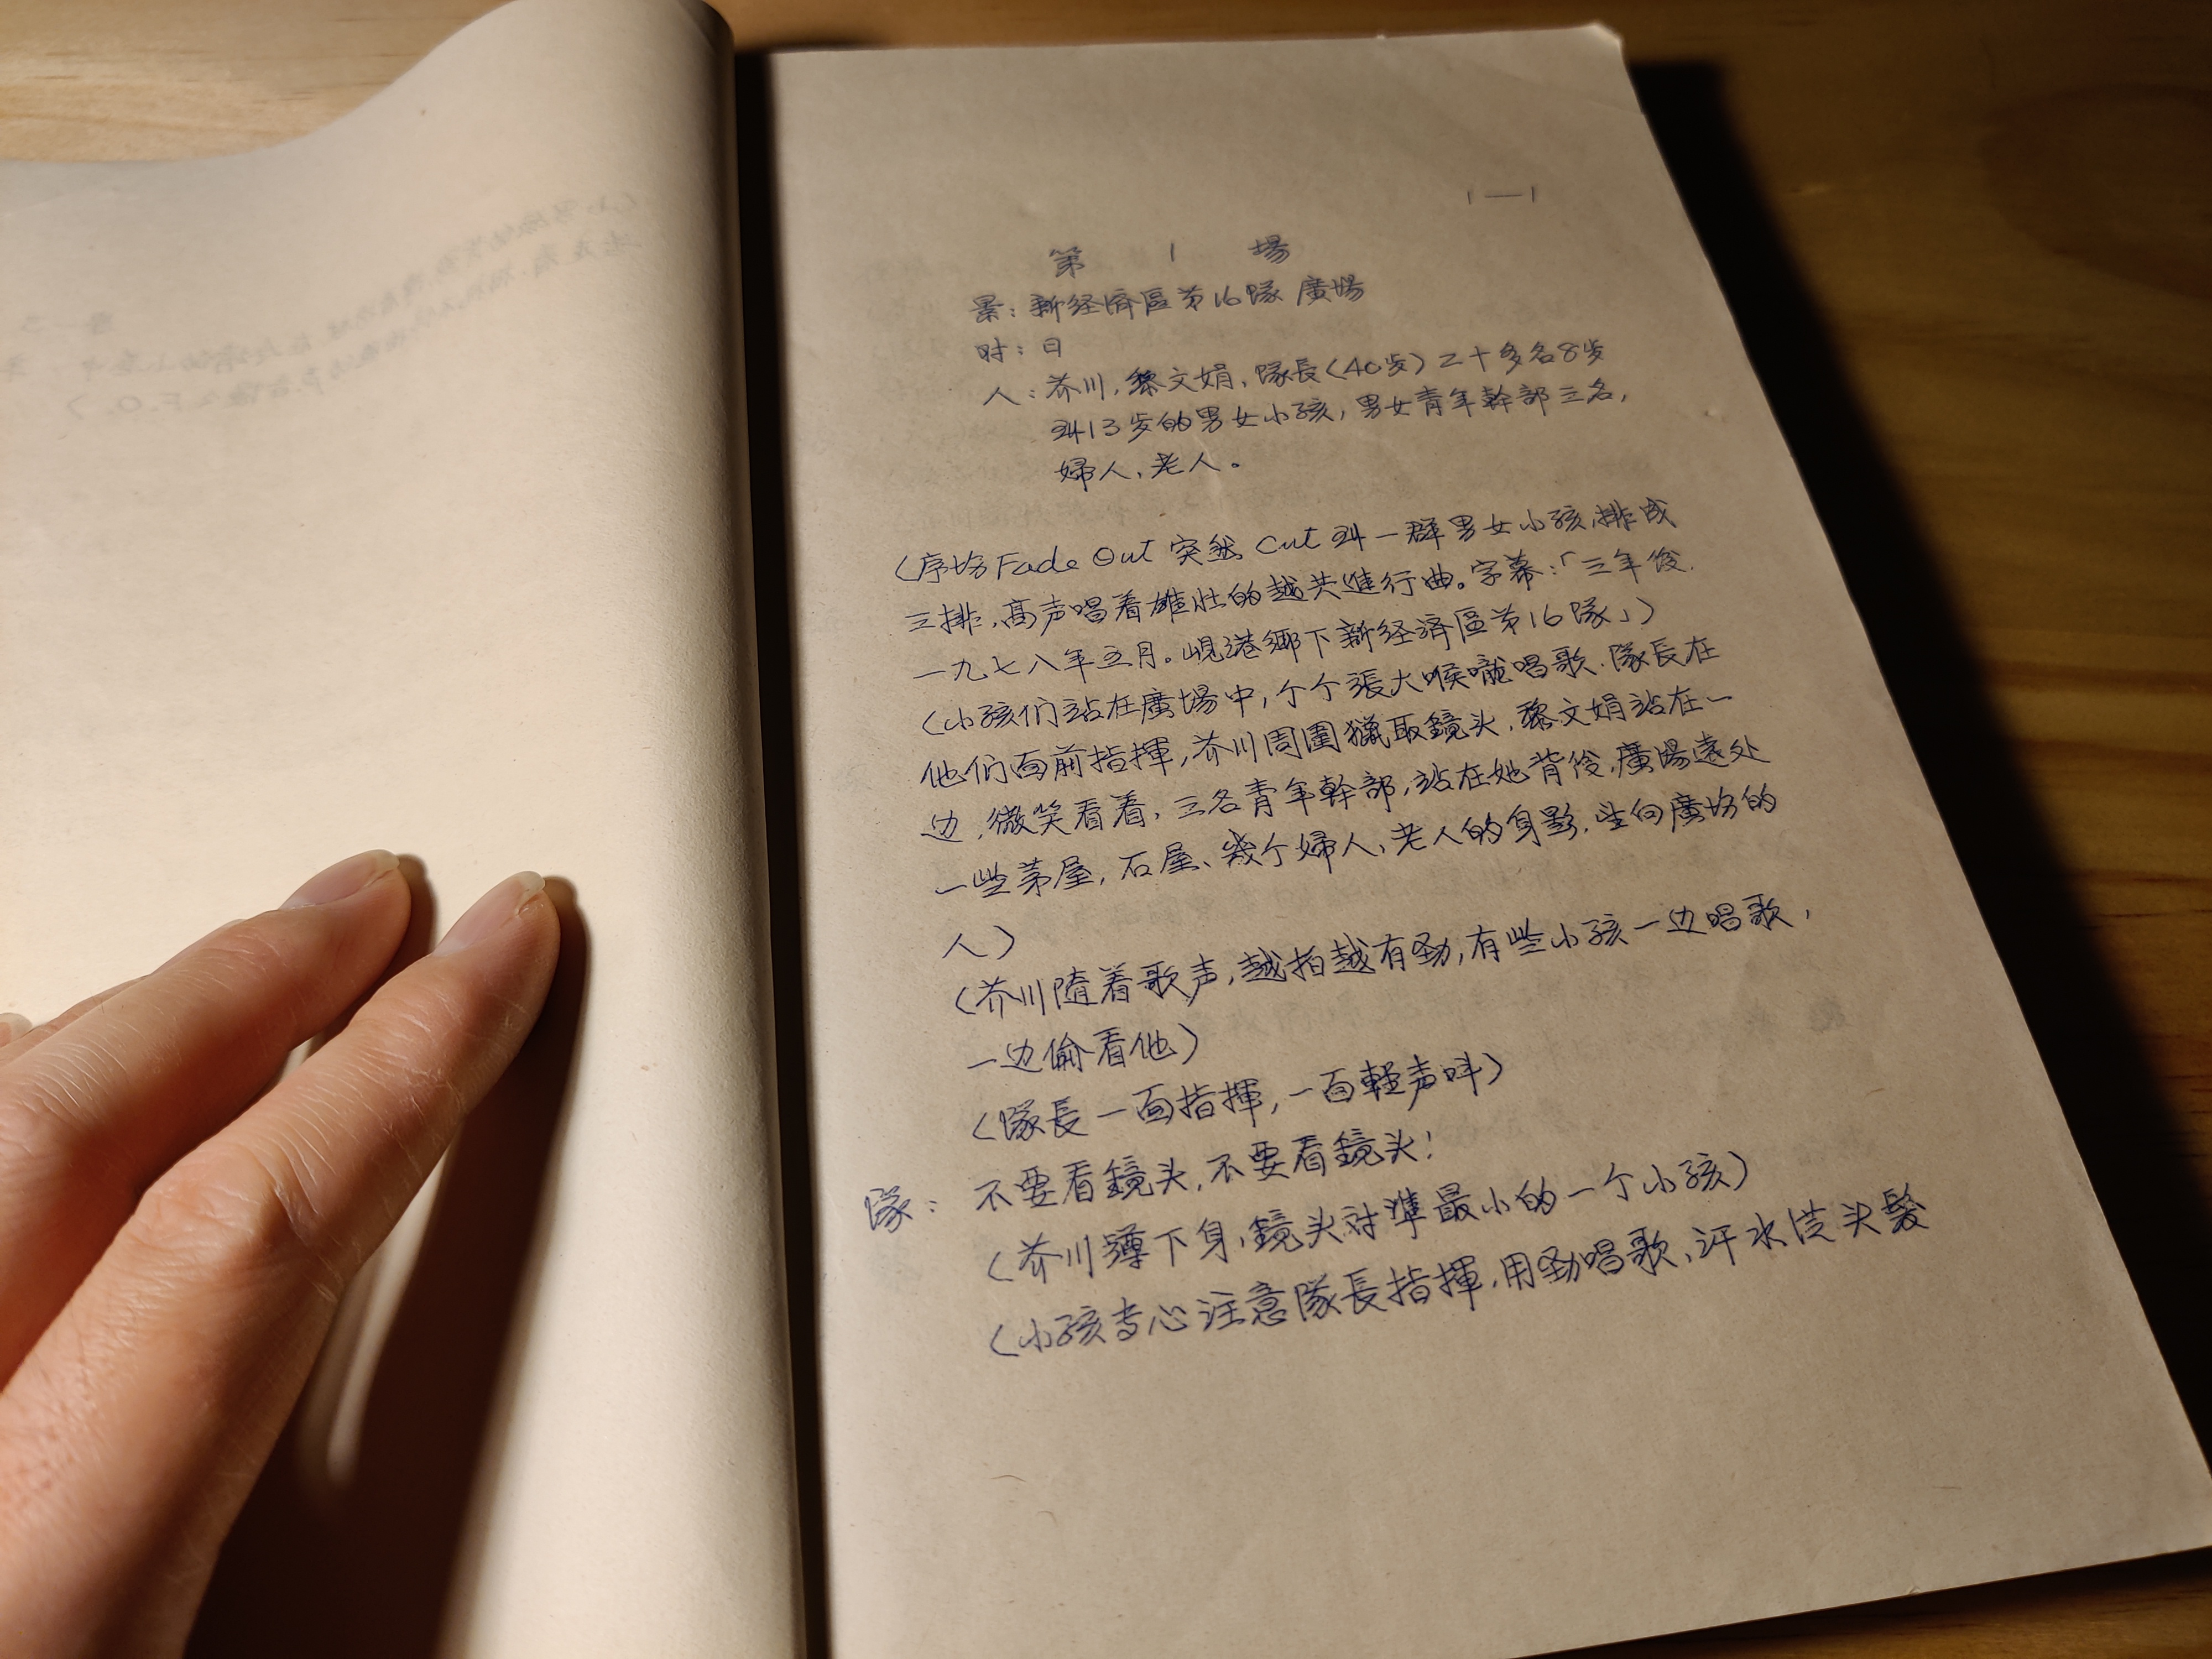 1—1
第 1 場
景：新経済區第16隊廣場
时：日
人：芥川，黎文娟，隊長（40岁）二十多名8岁
到13岁的男女小孩，男女青年幹部三名，
婦人，老人。
（序场Fade Out 突然 Cut 到一群男女小孩，排成
三排，高声唱着雄壯的越共進行曲。字幕：「三年後，
一九七八年五月。峴港鄉下新经済區第16隊」）
（小孩们站在廣場中，个个張大喉嚨唱歌，隊長在
他们面前指揮，芥川周圍獵取鏡头，黎文娟站在一
边，微笑看着，三名青年幹部，站在她背後，廣場遠处
一些茅屋，石屋、幾个婦人，老人的身影，坐向廣场的
人）
（芥川隨着歌声，越拍越有劲，有些小孩一边唱歌，
一边偷看他）
（隊長一面指揮，一面輕声叫）
隊：不要看鏡头，不要看鏡头！
（芥川蹲下身，鏡头对準最小的一个小孩）
（小孩专心注意隊長指揮，用劲唱歌，汗水 头髮